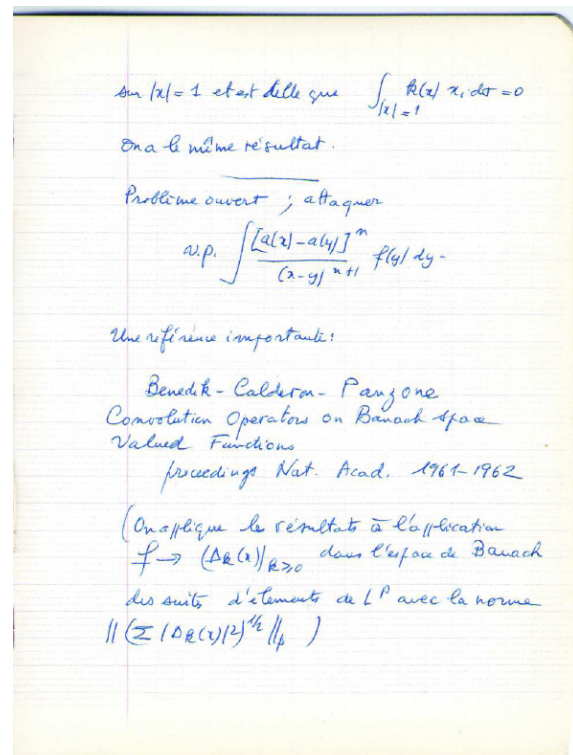 sur |x| = 1 et est telle que ∫_{|x|=1} k(x) x_i dσ = 0
On a le même résultat.
Problème ouvert ; attaquer
v.p. ∫ [a(x) - a(y)]^n / (x-y)^{n+1} f(y) dy.
Une référence importante :
Benedek - Calderon - Panzone
Convolution Operators on Banach space
Valued Functions
proceedings Nat. Acad. 1961-1962
(On applique le résultats à l'application
f → (Δ_k(x))|_{k≥0} dans l'espace de Banach
des suites d'éléments de L^p avec la norme
‖(Σ |Δ_k(x)|2)^{1/2}‖_p )